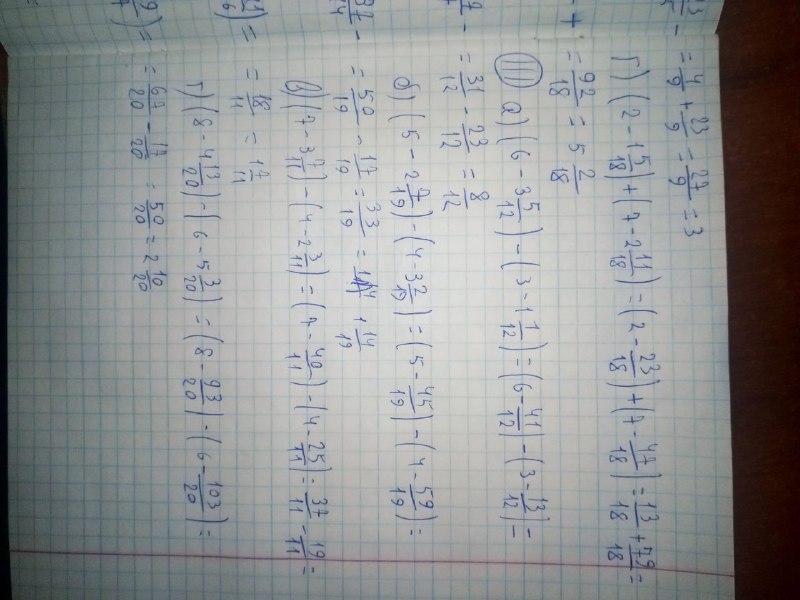 = 4/9 + 23/9 = 27/9 = 3
Г) (2 - 1 5/18) + (7 - 2 11/18) = (2 - 23/18) + (7 - 47/18) = 13/18 + 79/18 =
= 92/18 = 5 2/18
III а) (6 - 3 5/12) - (3 - 1 1/12) = (6 - 41/12) - (3 - 13/12) =
= 31/12 - 23/12 = 8/12
б) (5 - 2 7/19) - (4 - 3 2/19) = (5 - 45/19) - (4 - 59/19) =
= 50/19 - 17/19 = 33/19 = 1 14/19
в) (7 - 3 7/11) - (4 - 2 3/11) = (7 - 40/11) - (4 - 25/11) = 37/11 - 19/11 =
= 18/11 = 1 7/11
г) (8 - 4 13/20) - (6 - 5 3/20) = (8 - 93/20) - (6 - 103/20) =
= 67/20 - 17/20 = 50/20 = 2 10/20